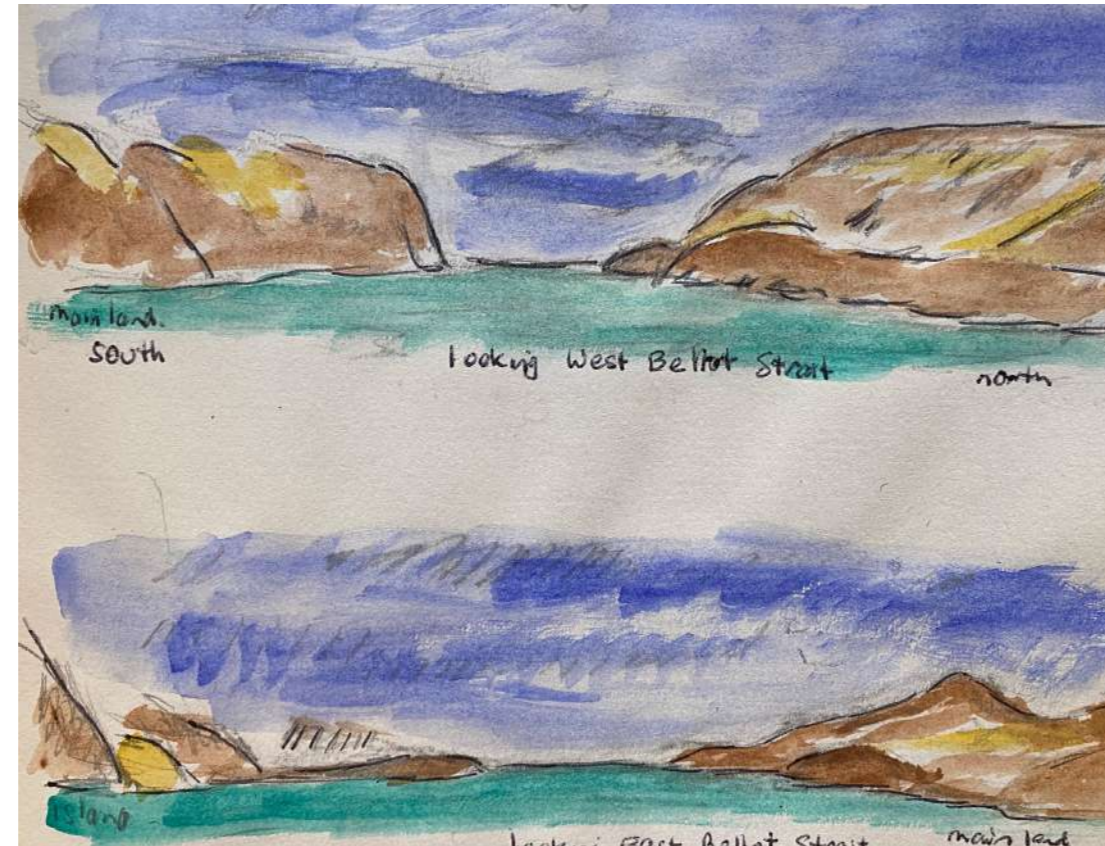 mainland.
South
looking West Bellot Strait
north
island
looking East Bellot Strait
mainland